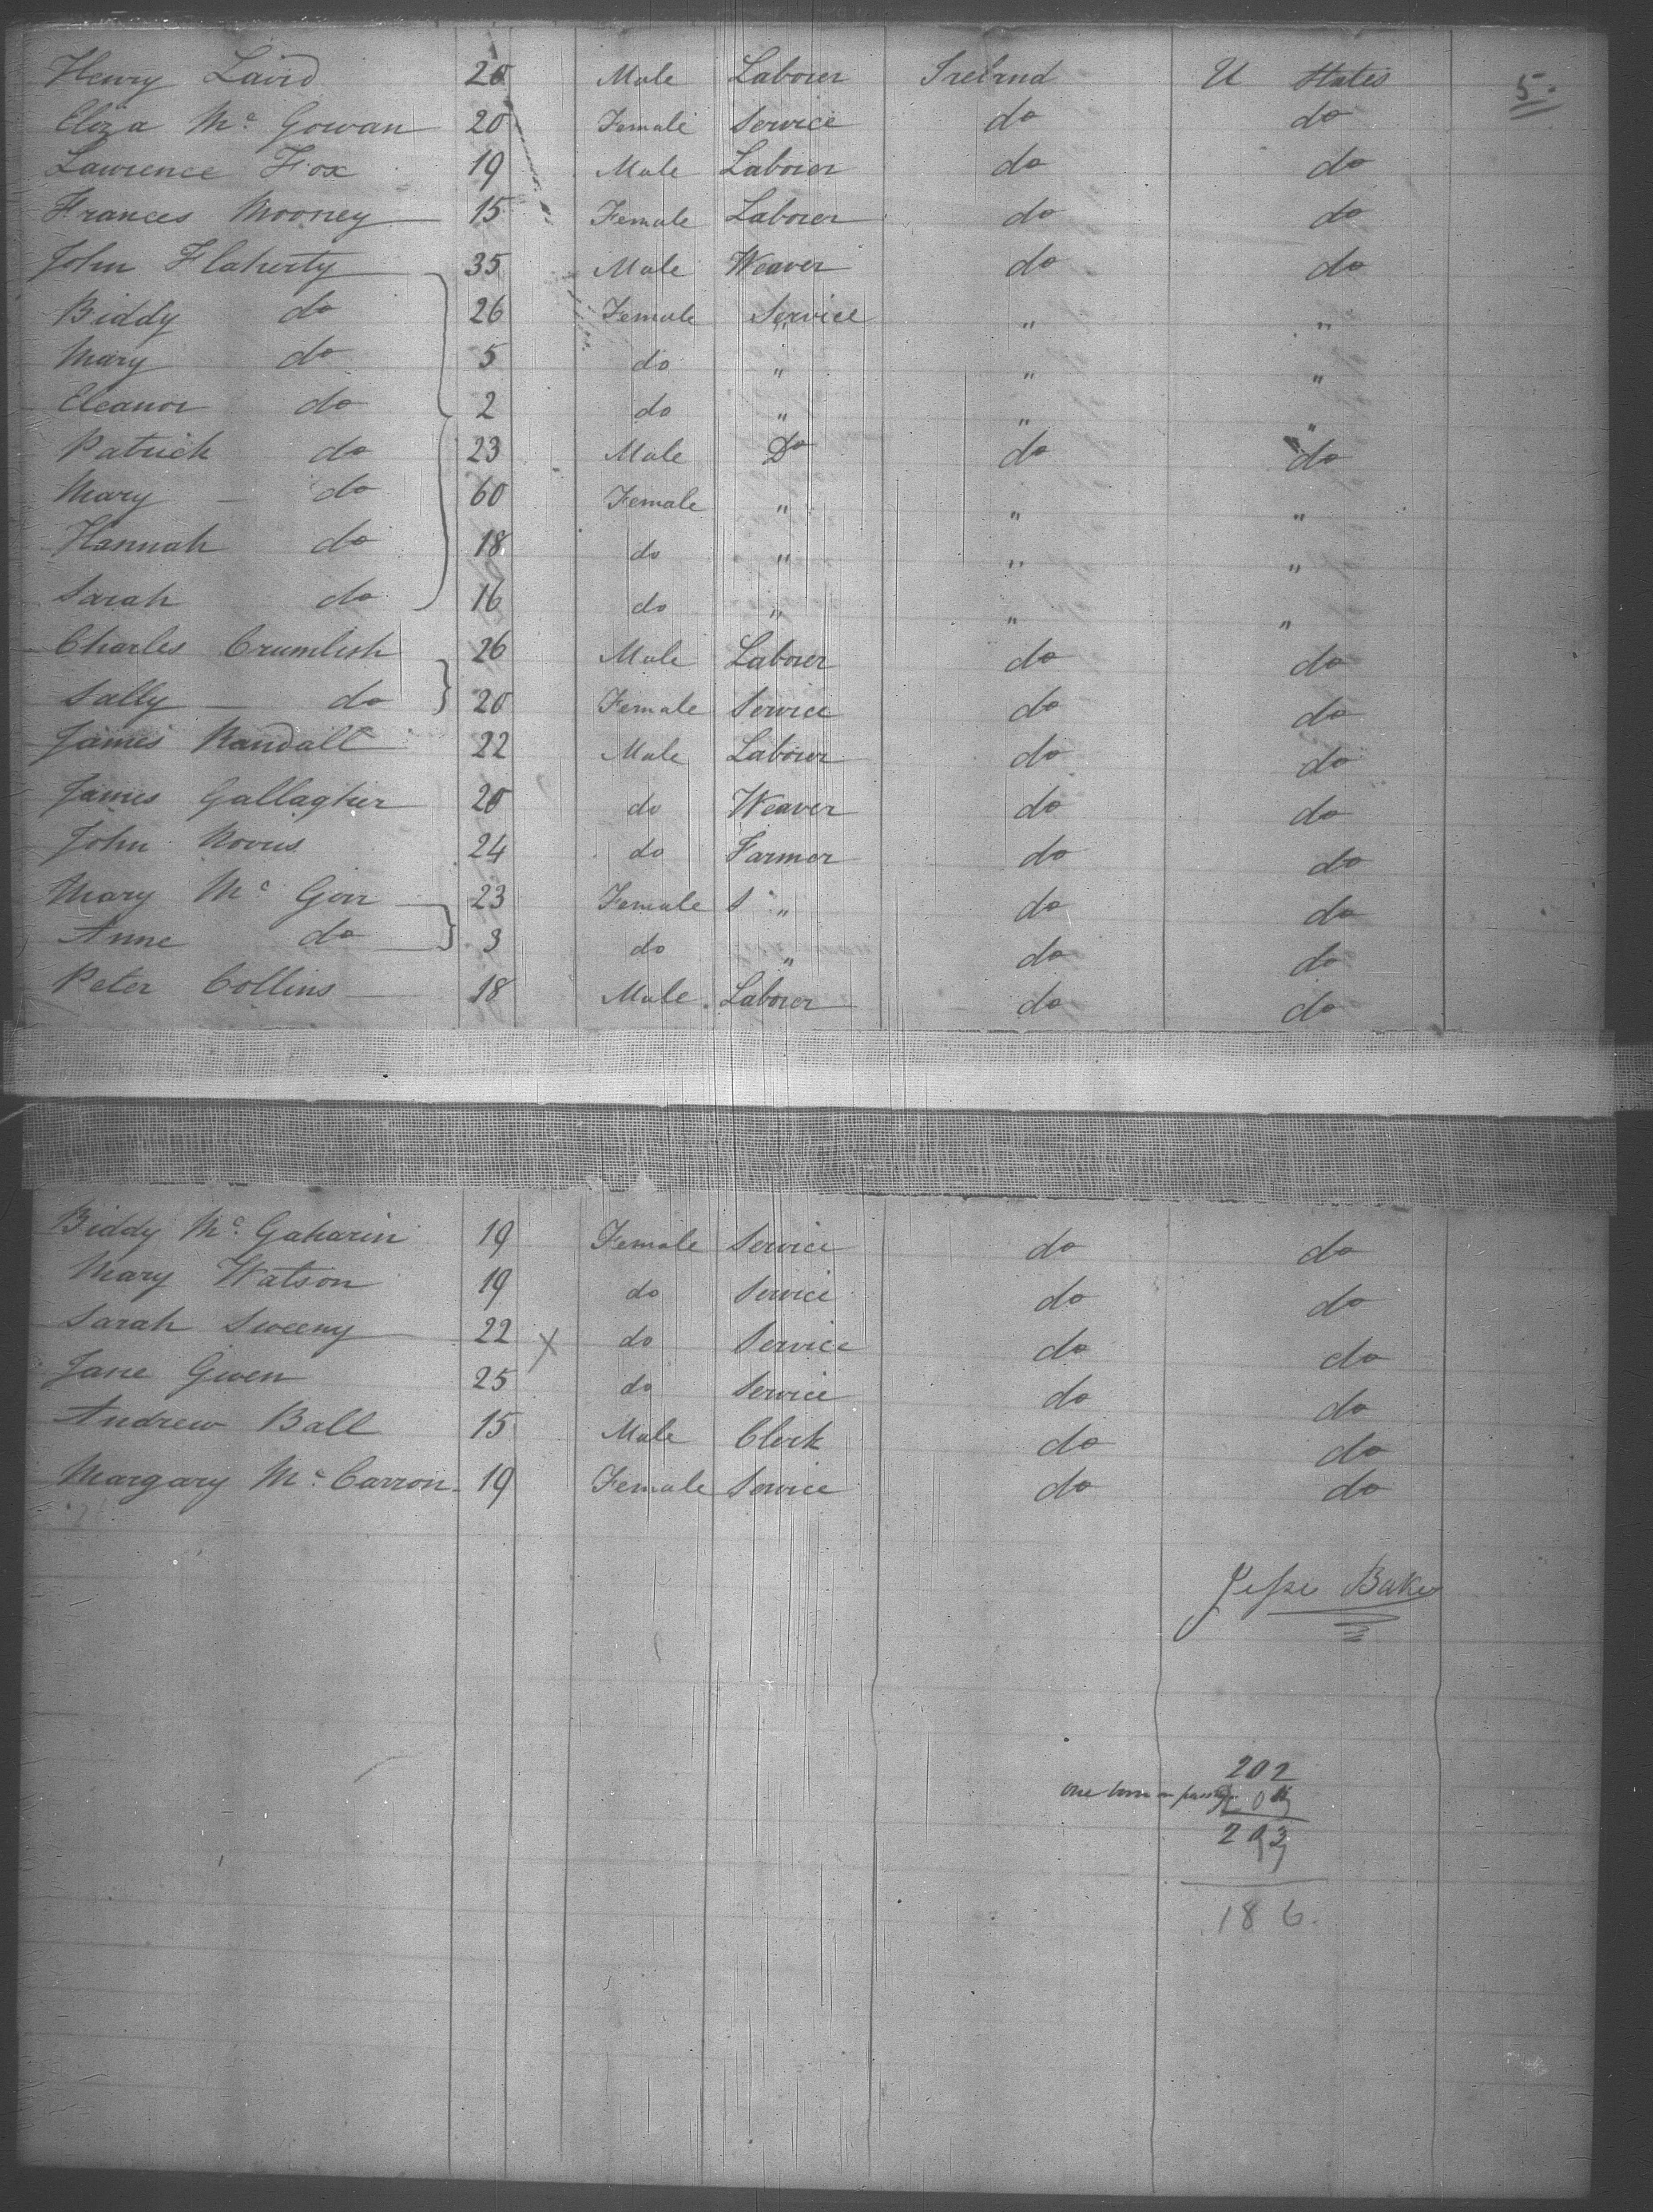 Henry Laird 20 Male Laborer Ireland U States 5.
Eliza Mc Gowan 20 Female Service do do
Lawrence Fox 19 Male Laborer do do
Frances Mooney 15 Female Laborer do do
John Flaherty 35 Male Weaver do do
Biddy do 26 Female Service " "
Mary do 5 do " " "
Eleanor do 2 do " " "
Patrick do 23 Male Do do do
Mary — do 60 Female " " "
Hannah do 18 do " " "
Sarah do 16 do " " "
Charles Crumlish 26 Male Laborer do do
Sally — do 20 Female Service do do
James Randall 22 Male Laborer do do
James Gallagher 20 do Weaver do do
John 24 do Farmer do do
Mary Mc 23 Female S " do do
Anne do 3 do " do do
Peter Collins 18 Male Laborer do do
Biddy Mc Gaharin 19 Female Service do do
Mary Watson 19 do Service do do
Sarah Sweeny 22 X do Service do do
Jane 25 do Service do do
Andrew Ball 15 Male Clerk do do
Margary Mc Carron 19 Female Service do do
Jesse Baker
202
one born on passage
203
186.